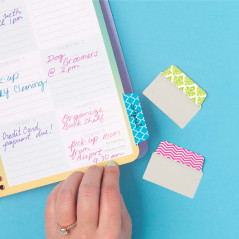 with
1pm
Dog
Groomers
@ 2 pm
pick-up
Dry Cleaning!
Organize
Book Shelf
Credit Card
payment due!
pick up mom
from
airport
9:30 am